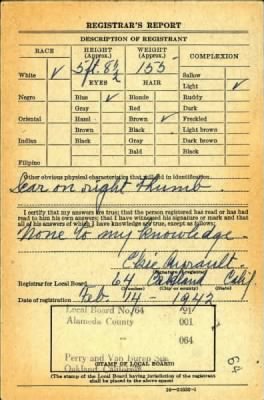 REGISTRAR'S REPORT
DESCRIPTION OF REGISTRANT
RACE HEIGHT (Approx.) WEIGHT (Approx.) COMPLEXION
White ✓ 5 ft. 8½ 155 Sallow
EYES HAIR Light ✓
Negro Blue ✓ Blonde Ruddy
Gray Red Dark
Oriental Hazel Brown ✓ Freckled
Brown Black Light brown
Indian Black Gray Dark brown
Bald Black
Filipino
Other obvious physical characteristics that will aid in identification
Scar on right thumb.
I certify that my answers are true; that the person registered has read or has had
read to him his own answers; that I have witnessed his signature or mark and that
all of his answers of which I have knowledge are true, except as follows:
None to my knowledge.
(Signature of registrar)
Registrar for Local Board 64 Oakland Calif
(Number) (City or county) (State)
Date of registration Feb. 14 - 1942
Local Board No. 64 91
Alameda County 001
064
Perry and Van Buren Sts.
Oakland, California
(STAMP OF LOCAL BOARD)
(The stamp of the Local Board having jurisdiction of the registrant
shall be placed in the above space)
64